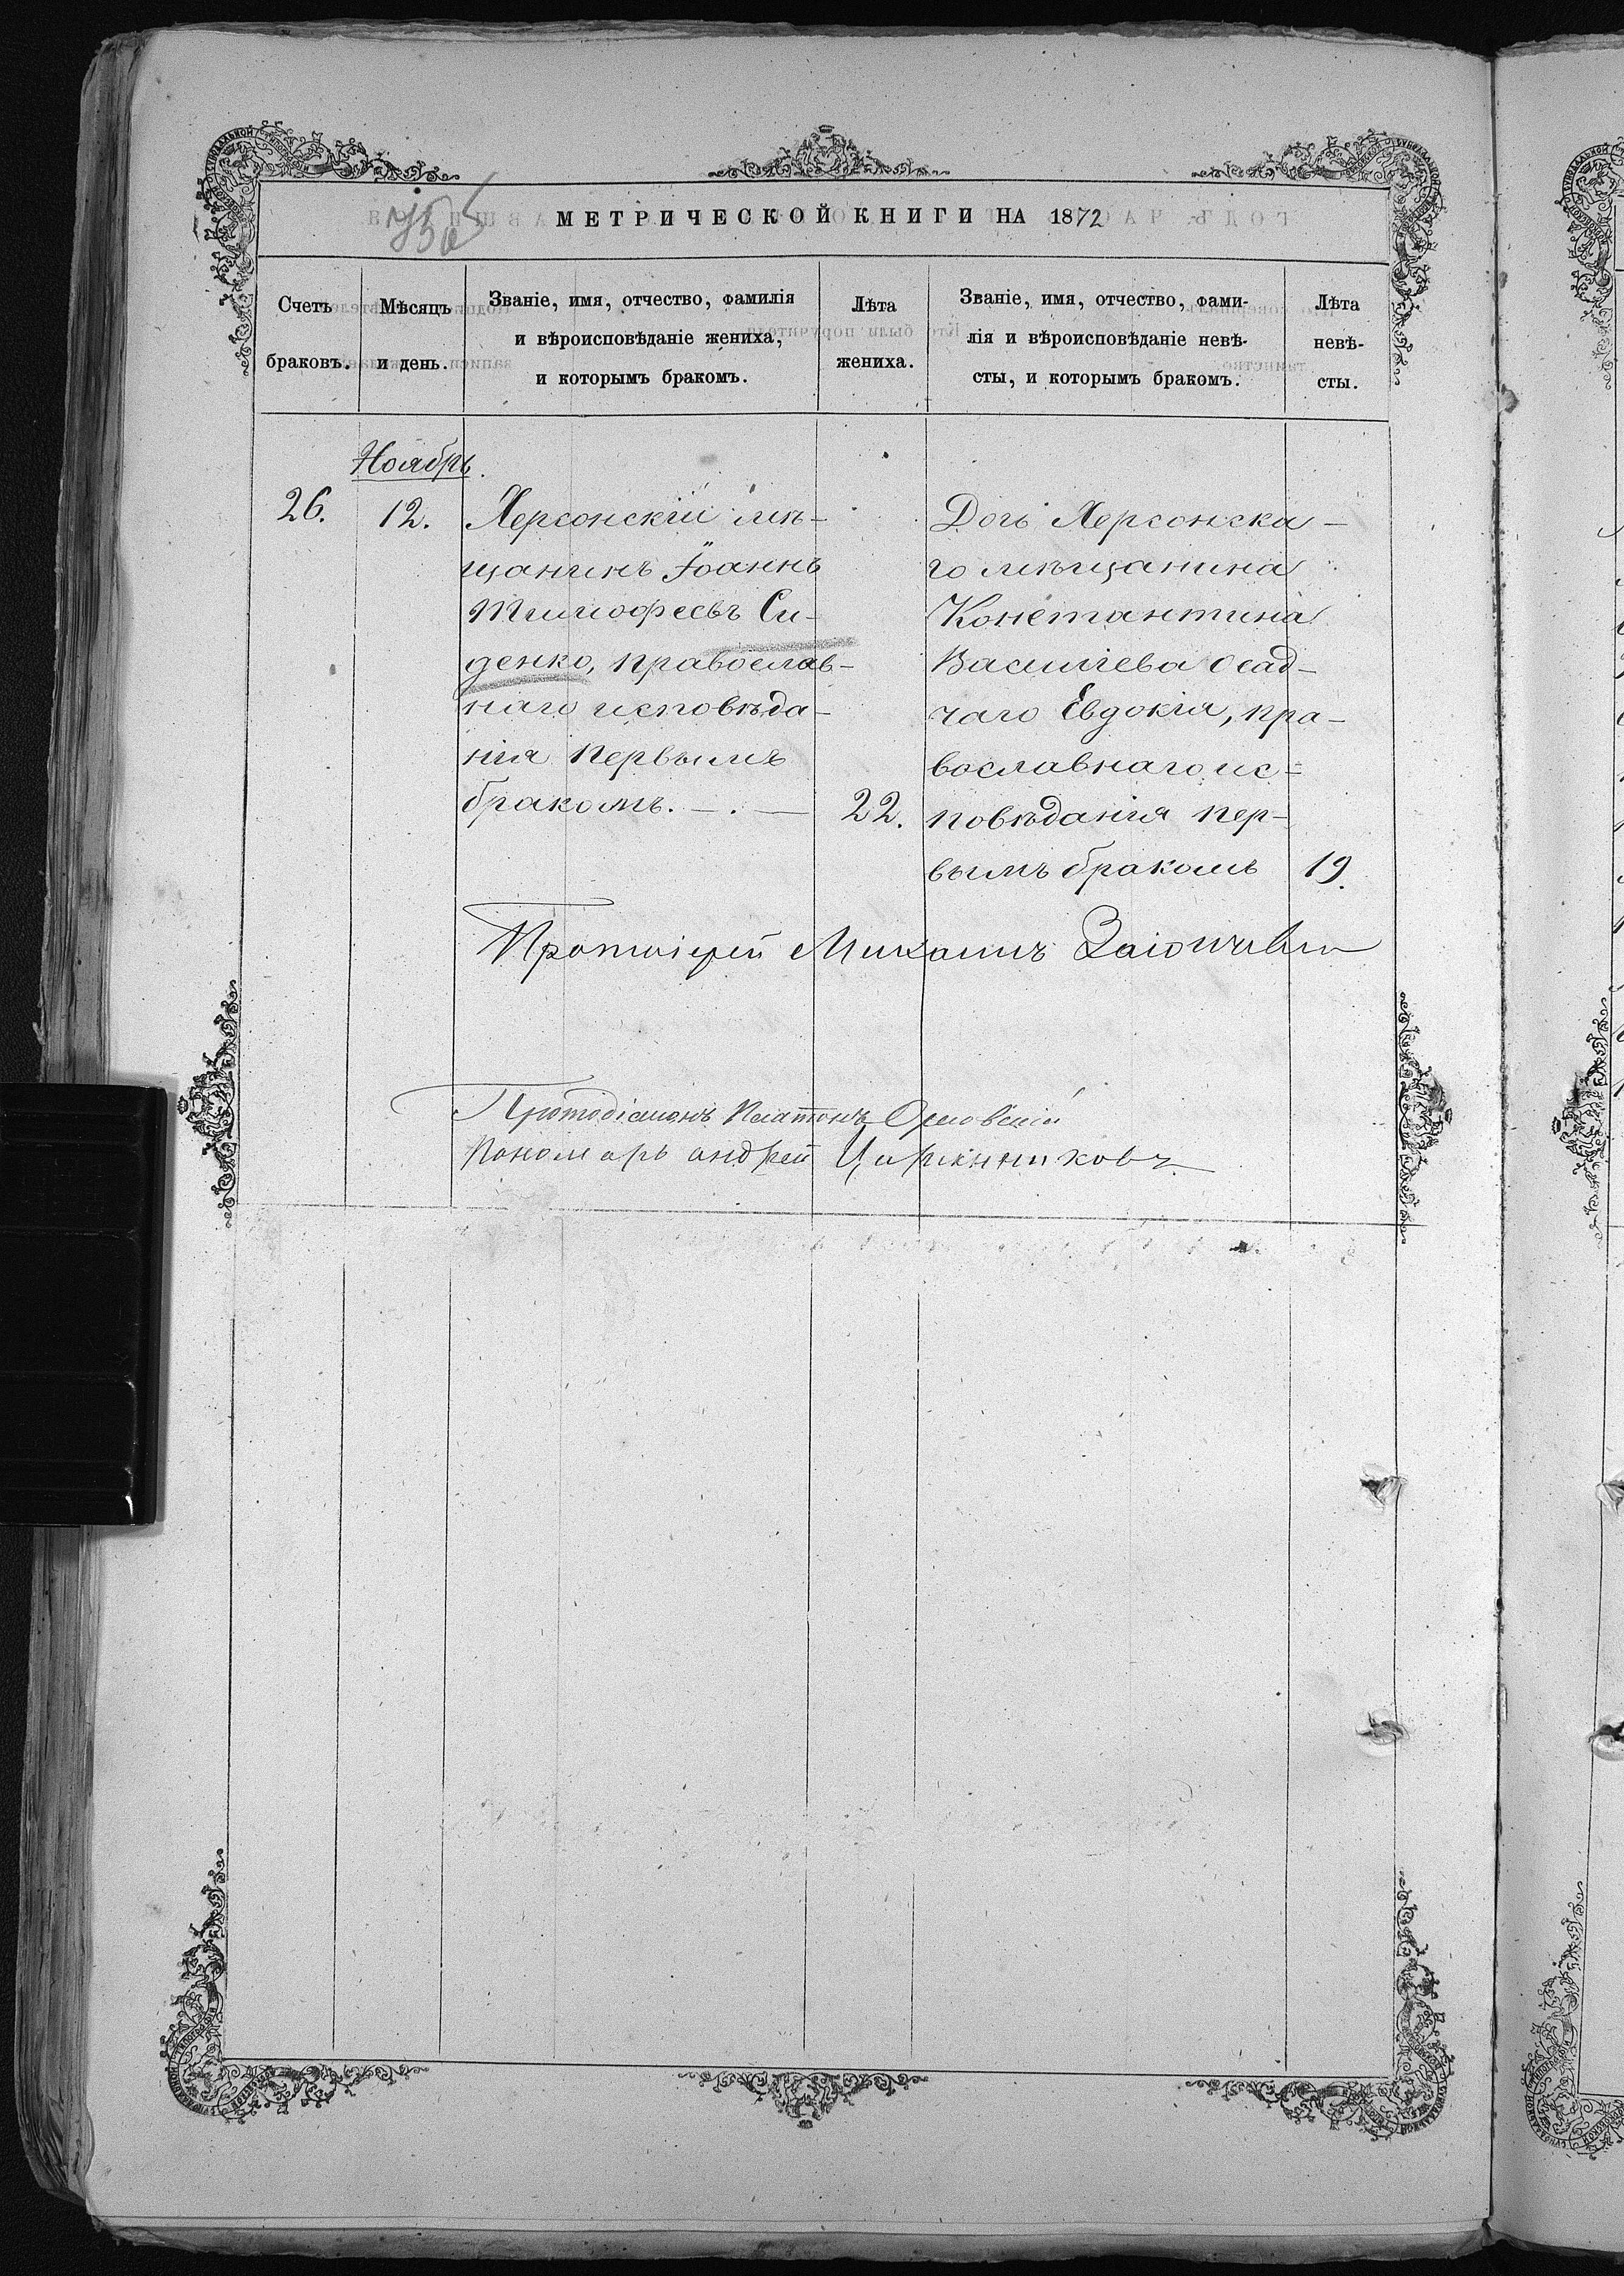 МЕТРИЧЕСКОЙ КНИГИ НА 1872
Счетъ браковъ.
Мѣсяцъ и день.
Званіе, имя, отчество, фамилія
и вѣроисповѣданіе жениха,
и которымъ бракомъ.
Лѣта жениха.
Званіе, имя, отчество, фами-
лія и вѣроисповѣданіе невѣ-
сты, и которымъ бракомъ.
Лѣта невѣ-
сты.
Ноябрь.
26.
12.
Херсонскій мѣ-
щанинъ Іоаннъ
Тимофеевъ Си-
денко, православ-
наго исповѣда-
нія первымъ
бракомъ. — . —
22.
Дочь Херсонска-
го мѣщанина
Константина
Василіева Осад-
чаго Евдокія, пра-
вославнаго ис=
повѣданія пер-
вымъ бракомъ
19.
Протоіерей Михаилъ
Протодіаконъ Платонъ
Пономарь андрей